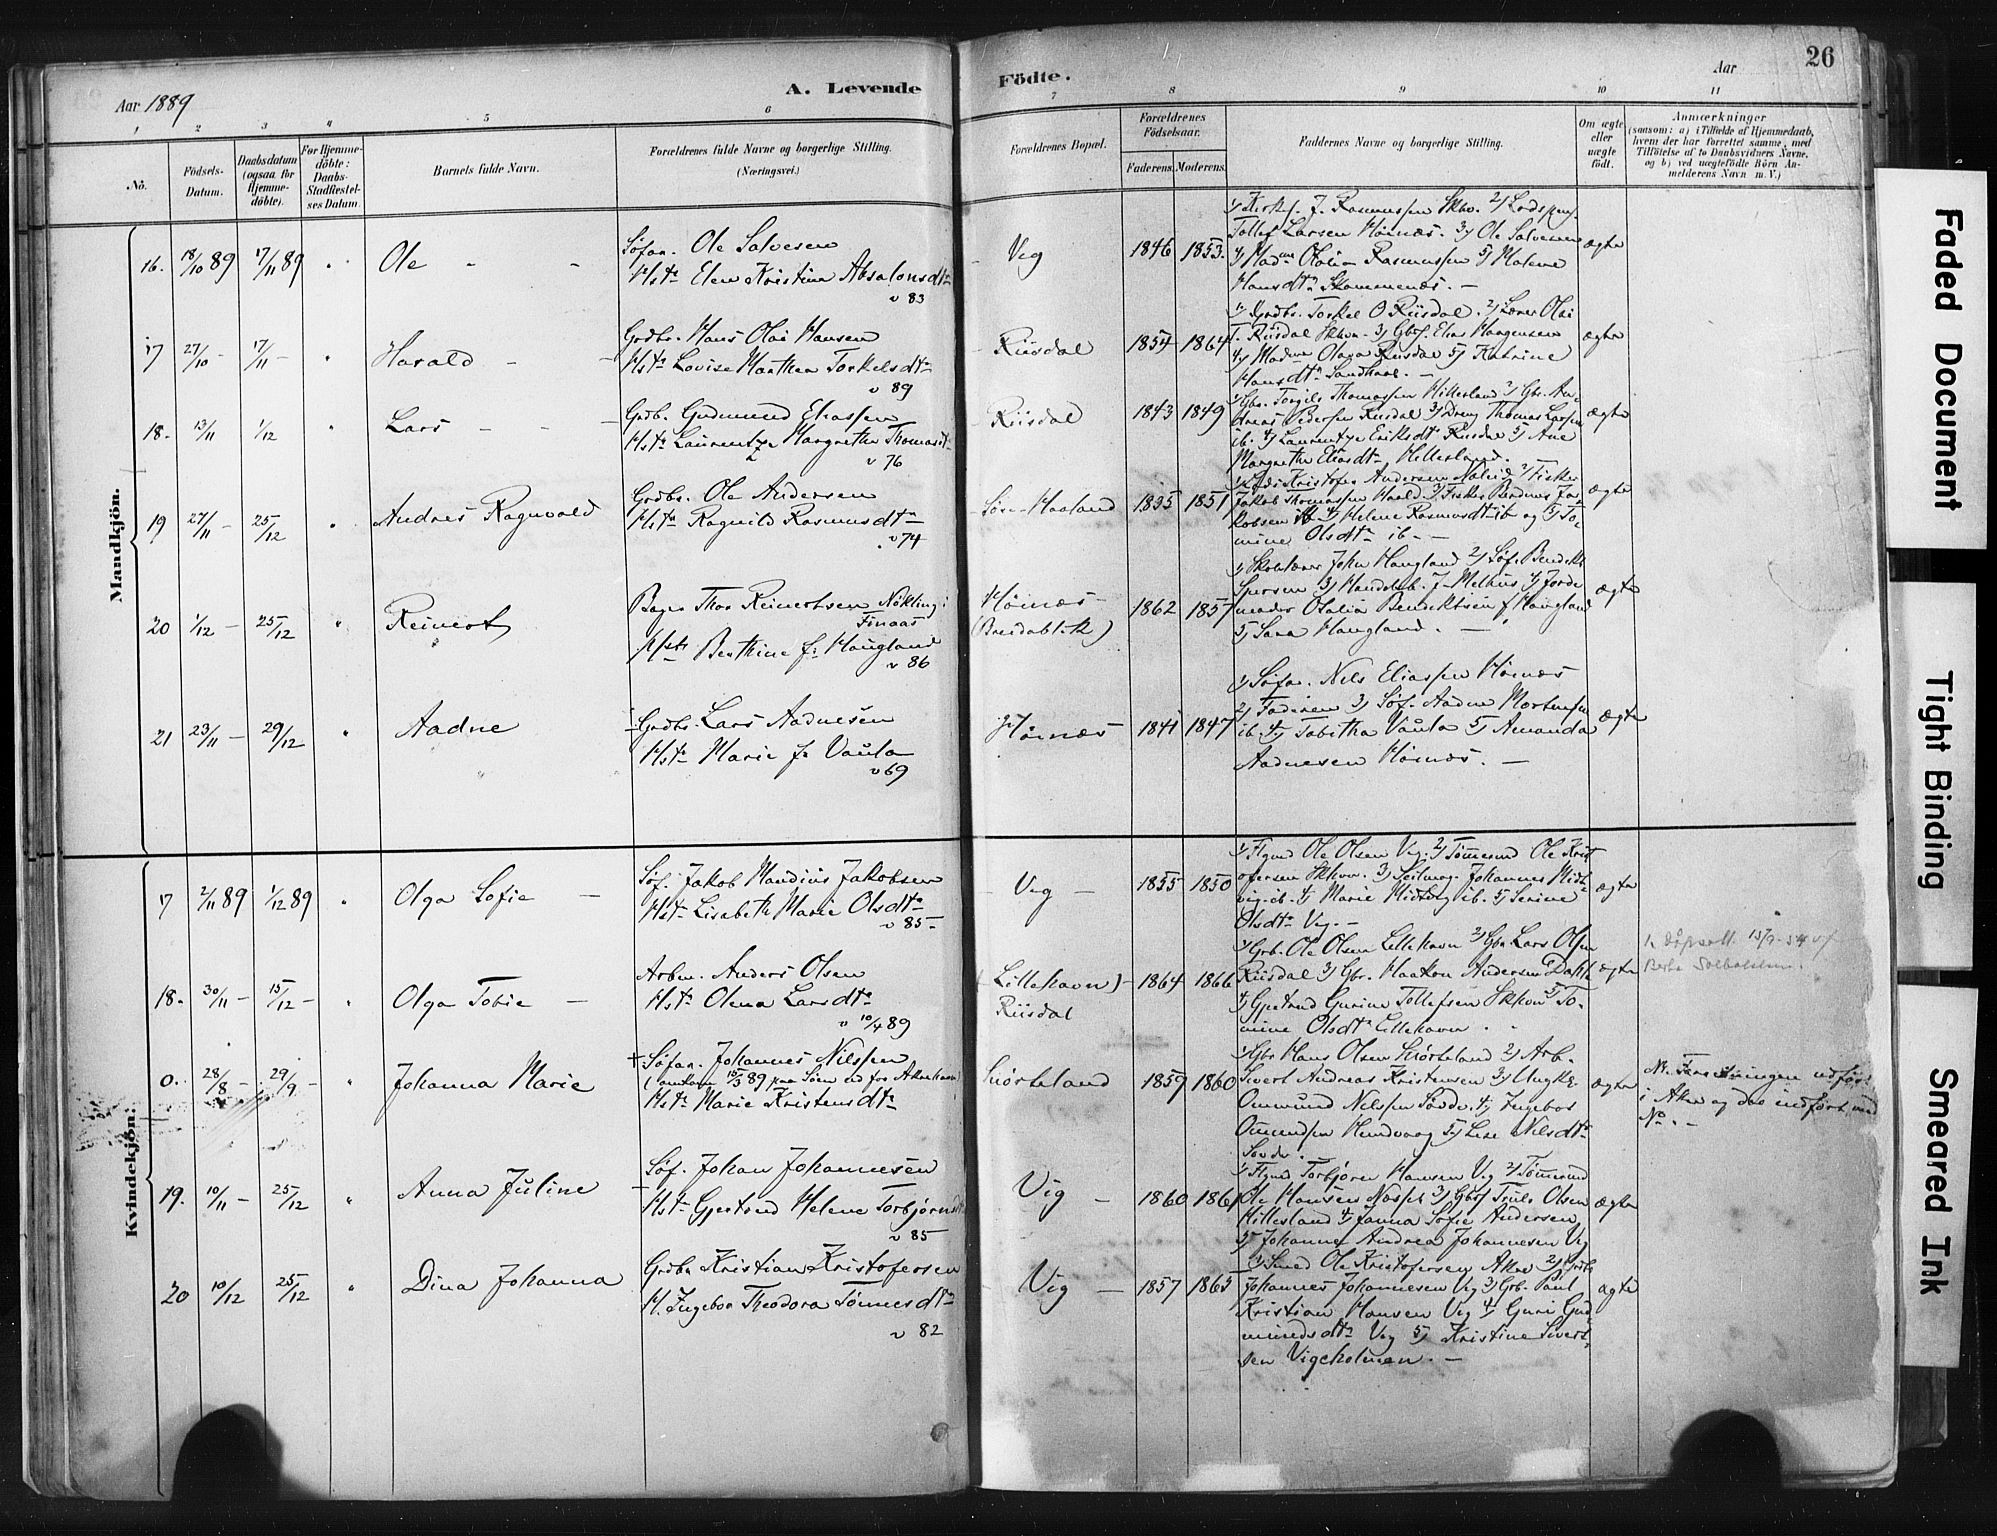 26
Aar 1889
A. Levende
Födte.
Aar
1 2 3 4 5 6 7 8 9 10 11
No.
Födsels-
Datum.
Daabsdatum
(ogsaa for
Hjemme-
döbte).
For Hjemme-
döbte:
Daabs-
Stadfæstel-
ses Datum.
Barnets fulde Navn.
Forældrenes fulde Navne og borgerlige Stilling.
(Næringsvei.)
Forældrenes Bopæl.
Forældrenes
Födselsaar.
Faderens. Moderens.
Faddernes Navne og borgerlige Stilling.
Om ægte
eller
uægte
födt.
Anmærkninger
(saasom: a) i Tilfælde af Hjemmedaab,
hvem der har forrettet samme, med
Tilföielse af to Daabsvidners Navne,
og b) ved uægtefödte Börn An-
melderens Navn m. V.)
Mandkjön.
16. 18/10 89 17/11 89 Ole
Søfar. Ole Salvesen
Hst. Elen Kristine Absalonsdtr
v 83
Veg 1846 1853.
Rasmussen Skhv. 2)
Tollef Larsen Høinæs. 3) Ole Salvesen
4) Mad. Olalia Rasmussen 5) Malene
Hansdtr
ægte
17 27/10 - 17/11 - Harald
Grdbr. Hans Olai Hansen
Hstr Lovise Marthea Torkelsdtr
v 89
Riisdal 1854 1864
1) Grdbr. Torkel O Riisdal. 2) Lærer Olai
T. Riisdal Skhvn. 3) Gbf. Elias Haagensen
4) Madme Olava Riisdal 5) Katrine
Hansdtr
ægte
18. 13/11 1/12 Lars
Grdb. Gudmund Eliassen
Hstr Laurentze Margrethe Thomasdtr
v 76
Riisdal 1843 1849
1) Gbr. Torgils Thomassen Hillesland 2) Gbr. An-
dreas Pedersen Riisdal 3) Dreng Thomas Larsen
ib. 4) Laurentze Eriksdtr Riisdal 5) Ane
Margrethe Eliasdtr Hillesland.
ægte
19 27/11 - 25/12 Andres Ragnvald
Grdbr. Ole Andersen
Hstr Ragnild Rasmusdtr
v 74
Søre Haaland 1835 1851
Kristofer Andersen 2) Fisker
Jakob Thomassen 3) Fisker Ja-
kobsen ib 4) Helene Rasmusdtr ib og 5) To-
mine Olsdtr ib. -
ægte
20 1/12 - 25/12 Reinert
Bager Thor Reinertsen Nökling i
Finaas
Hstr Berthine f. Haugland
v 86
Høinæs
(Breidablik) 1862 1857
1) Skolelærer John Haugland 2) Søf. Bendikt
Iversen 3) Handelsb. J. Melhus 4) Jorde-
moder Olalia Bendiktsen f. Haugland
5) Sara Haugland. -
ægte
21 23/11 - 29/12 Aadne
Grdbr. Lars Aadnesen
Hstr Marie f. Vaula
v 69
Høinæs 1841 1847
1) Søfar. Nils Eliassen Høinæs
2) Faderen 3) Søf. Aadne Mortensen
ib. 4) Tabitha Vaula 5) Amanda
Aadnesen Høinæs. -
ægte
Kvindekjön:
17 2/11 89 1/12 89 Olga Sofie -
Søf. Jakob Mandius Jakobsen
Hstr Lisabeth Marie Olsdtr
v 85 -
Veg - 1855 1850
Ole Olsen Veg. 2) Tømmermd Ole Krist
ofersen Skhvn. 3) Seilmag. Johannes Midt-
vig ib. 4) Marie Midtvig ib. 5) Serine
Olsdtr Veg. -
ægte
18. 30/11 - 15/12 - Olga Tobie -
Arbm. Anders Olsen
Hstr Olena Larsdtr
v 10/4 89
(Lillehavn) -
Riisdal 1864 1866
1) Grb. Ole Olsen Lillehavn 2) Gbr Lars Olsen
Riisdal 3) Gbr. Haakon Andersen
4) Gjertrud Gurine Tollefsen Skhvn 5) To-
mine Olsdtr Lillehavn.
ægte
1. dåpsatt. 15/9-54
0. 28/8 - 29/9 - Johanna Marie
+ Søfar. Johannes Nilssen
(omkom 10/3 89 paa Søen ud for Akrehavn)
Hstr Marie Kristensdtr
1859 1860
1) Gbr Hans Olsen 2) Arb.
Sivert Andreas Kristensen 3) Ungk.
Ommund Nilssen Søvde. 4) Ingebor
5) Lise Nilsdtr
ægte
udført
i Akre og der indført med
No. -
19. 10/11 - 25/12 Anna Juline
Søf. Johan Johannesen
Hstr Gjertrud Helene Torbjørns
v 85
Vig - 1860 1861
Torbjørn Hansen Veg 2) Tømmermd
Ole Hansen 3) Gbf Truls Olsen
Hillesland 4) Janna Sofie Andersen
5) Johanne Andrea Johannesen Veg
ægte
20 10/12 25/12 Dina Johanna
Grdbr Kristian Kristofersen
H. Ingebor Theodora Tønnesdtr
v 82
Vig - 1857 1865
1) Smed Ole Kristofersen Akre 2) Grdb
Johannes Johannesen Veg 3) Grb. Paul
Kristian Hansen Veg 4) Guri Gud-
mundsdtr Veg 5) Kristine Sivert-
sen Vigeholmen. -
ægte
Faded Document
Tight Binding
Smeared Ink